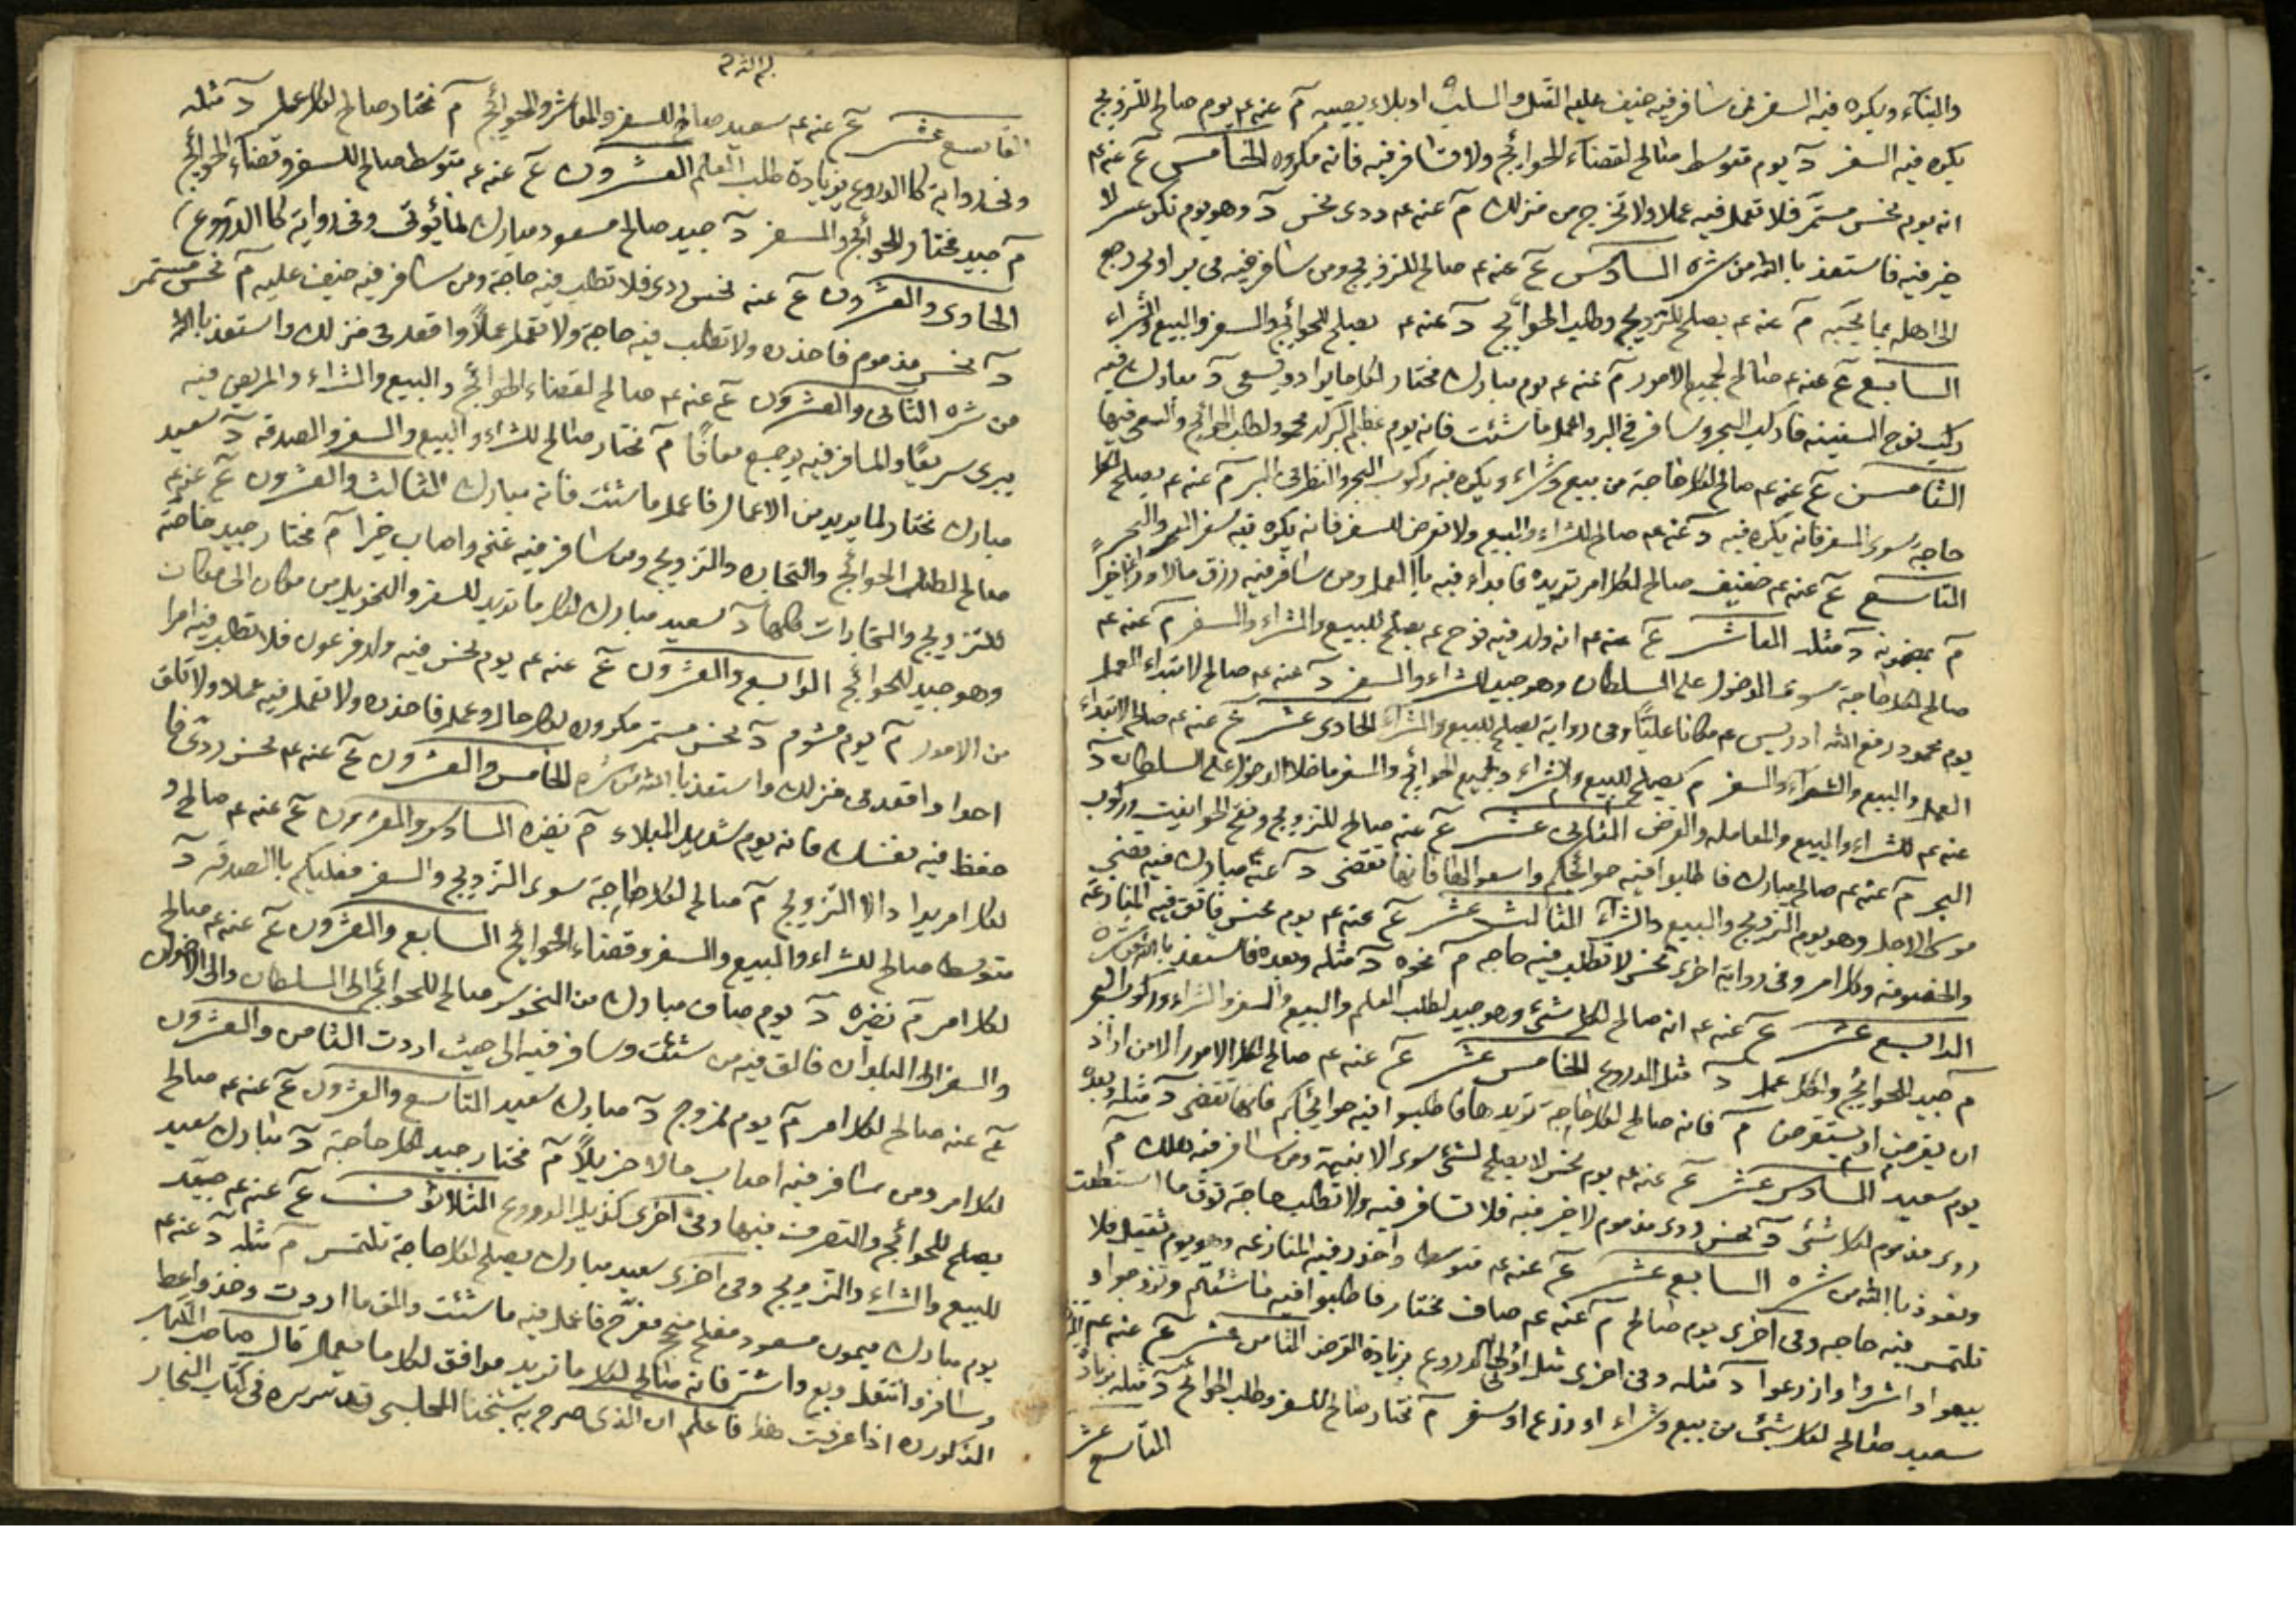 والبناء ويكره فيه السفر فمن سافر فيه خيف عليه القتل والسلب او بلاء يصيبه م عنه عم يوم صالح للتزويج
يكره فيه السفر د يوم متوسط صالح لقضاء الحوائج ولا تسافر فيه فانه مكروه الخامس ع عنه عم
انه يوم نحس مستمر فلا تعمل فيه عملا ولا تخرج من منزلك م عنه عم ردى نحس د وهو يوم نكد عسر لا
خير فيه فاستعذ بالله من شره السادس ع عنه عم صالح للتزويج ومن سافر فيه في بر او بحر رجع
الى اهله بما يحبه م عنه عم يصلح للتزويج وطلب الحوائج د عنه عم يصلح للحوائج والسفر والبيع والشراء
السابع ع عنه عم صالح لجميع الامور م عنه عم يوم مبارك مختار لكل ما يراد ويسعى د مبارك فيه
ركب نوح السفينه فاركب البحر وسافر في البر واعمل ما شئت فانه يوم عظيم البركه محمود لطلب الحوائج والسعي فيها
الثامن ع عنه عم صالح لكل حاجة من بيع وشراء ويكره فيه ركوب البحر والسفر في البر م عنه عم يصلح لكل
حاجة سوى السفر فانه يكره فيه د عنه عم صالح للشراء والبيع ولا تعرض للسفر فانه يكره فيه سفر البر والبحر
التاسع ع عنه عم خفيف صالح لكل امر تريده فابداء فيه بالعمل ومن سافر فيه رزق مالا وراى خيرا
م بمضمونه د مثله العاشر ع عنه عم انه ولد فيه نوح عم يصلح للبيع والشراء والسفر م عنه عم
صالح لكل حاجة سوى الدخول على السلطان وهو جيد للشراء والسفر د عنه عم صالح لابتداء العمل
يوم محمود رفع الله ادريس عم مكانا عليا وفى رواية يصلح للبيع والشراء الحادى عشر ع عنه عم صالح لابتداء
العمل والبيع والشراء والسفر م يصلح للبيع والشراء ولجميع الحوائج والسفر ما خلا الدخول على السلطان د
عنه عم للشراء والبيع والمعامله والقرض الثانى عشر ع عنه صالح للتزويج وفتح الحوانيت وركوب
البحر م عنه عم صالح مبارك فاطلبوا فيه حوائجكم واسعوا لها فانها تقضى د عنه مبارك فيه قضى
موسى الاجل وهو يوم التزويج والبيع والشراء الثالث عشر ع عنه عم يوم نحس فاتق فيه المنازعة
والخصومة وكل امر وفى رواية اخرى نحس لا تطلب فيه حاجه م نحوه د مثله وبعده فاستعذ بالله من شره
الرابع عشر ع عنه عم انه صالح لكل شئ وهو جيد لطلب العلم والبيع والسفر والشراء وركوب البحر
م جيد للحوائج ولكل عمل د مثل الدروع الخامس عشر ع عنه عم صالح لكل الامور الا من اراد
ان يقرض او يستقرض م فانه صالح لكل حاجة تريدها فاطلبوا فيه حوائجكم فانها تقضى د مثله وبعده
يوم سعيد السادس عشر ع عنه عم يوم نحس لا يصلح لشئ سوى الابنية ومن سافر فيه هلك م
ردى مذموم لكل شئ د نحس ردى مذموم لا خير فيه فلا تسافر فيه ولا تطلب حاجة توق ما استطعت
وتعوذ بالله من شره السابع عشر ع عنه عم متوسط واحذر فيه المنازعه وهو يوم ثقيل فلا
تلتمس فيه حاجه وفى اخرى يوم صالح م عنه عم صاف مختار فاطلبوا فيه ما شئتم وتزوجوا و
بيعوا واشروا وازرعوا د مثله وفى اخرى مثل اولى الدروع بزيادة القرض الثامن عشر ع عنه عم
سعيد صالح لكل شئ من بيع وشراء او زرع او سفر م مختار صالح للسفر وطلب الحوائج د مثله بزيادة
التاسع عشر
التاسع عشر ع عنه عم سعيد صالح للسفر والمعاش والحوائج م مختار صالح لكل عمل د مثله
وفى رواية كالدروع بزيادة طلب العلم العشرون ع عنه عم متوسط صالح للسفر وقضاء الحوائج
م جيد مختار للحوائج والسفر د جيد صالح مسعود مبارك لما يؤتى وفى رواية كالدروع
الحادى والعشرون ع عنه نحس ردى فلا تطلب فيه حاجة ومن سافر فيه خيف عليه م نحس مستمر
د نحس مذموم فاحذره ولا تطلب فيه حاجة ولا تعمل عملا واقعد فى منزلك واستعذ بالله
من شره الثانى والعشرون ع عنه عم صالح لقضاء الحوائج والبيع والشراء والمريض فيه
يبرى سريعا والمسافر فيه يرجع معافا م مختار صالح للشراء والبيع والسفر والصدقه د سعيد
مبارك مختار لما يريد من الاعمال فاعمل ما شئت فانه مبارك الثالث والعشرون ع عنه عم
صالح لطلب الحوائج والتجاره والتزويج ومن سافر فيه غنم واصاب خيرا م مختار جيد خاصة
للتزويج والتجارات كلها د سعيد مبارك لكل ما تريد للسفر والتحويل من مكان الى مكان
وهو جيد للحوائج الرابع والعشرون ع عنه عم يوم نحس فيه ولد فرعون فلا تطلب فيه امرا
من الامور م يوم مشوم د نحس مستمر مكروه لكل حال وعمل فاحذره ولا تعمل فيه عملا ولا تلق
احدا واقعد فى منزلك واستعذ بالله من شره الخامس والعشرون ع عنه عم نحس ردى فا
حفظ فيه نفسك فانه يوم شديد البلاء م نضره السادس والعشرون ع عنه عم صالح و
لكل امر يراد الا التزويج م صالح لكل حاجة سوى التزويج والسفر فعليكم بالصدقه د
متوسط صالح للشراء والبيع والسفر وقضاء الحوائج السابع والعشرون ع عنه عم صالح
لكل امر م نضره د يوم صاف مبارك من النحوس صالح للحوائج الى السلطان والى الاخوان
والسفر الى البلدان فالق فيه من شئت وسافر فيه الى حيث اردت الثامن والعشرون
ع عنه صالح لكل امر م يوم ممزوج د مبارك سعيد التاسع والعشرون ع عنه عم صالح
لكل امر ومن سافر فيه اصاب مالا جزيلا م مختار جيد لكل حاجة د مبارك سعيد
يصلح للحوائج والتصرف فيها وفى اخرى كذيل الدروع الثلاثون ع عنه عم جيد
للبيع والشراء والتزويج وفى اخرى سعيد مبارك يصلح لكل حاجة تلتمس م مثله د عنه عم
يوم مبارك ميمون مسعود مفلح منجح مفرح فاعمل فيه ما شئت والق ما اردت وخذ واعط
وسافر وانتقل وبع واشتر فانه صالح لكل ما تريد موافق لكل ما يعمل قال صاحب
المذكوره اذا عرفت هذا فاعلم ان الذى صرح به شيخنا المجلسى قدس سره فى كتاب البحار